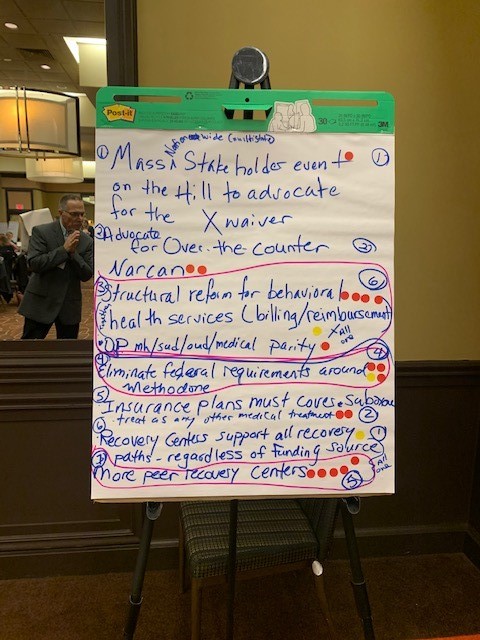 Post-it
30
3M
Nation Wide (multistate)
① Mass ^ Stakeholder event ①
on the Hill to advocate
for the X waiver
② Advocate
for Over-the-counter ②
Narcan
③ Structural reform for behavioral ⑥
health services (billing/reimbursement
mh/sud/oud/medical parity X All one
④ Eliminate federal requirements around ④
Methodone
⑤ Insurance plans must cover Suboxone
treat as any other medical treatment ②
⑥ Recovery Centers support all recovery ①
paths - regardless of funding source
⑦ More peer recovery Centers ⑤ All one